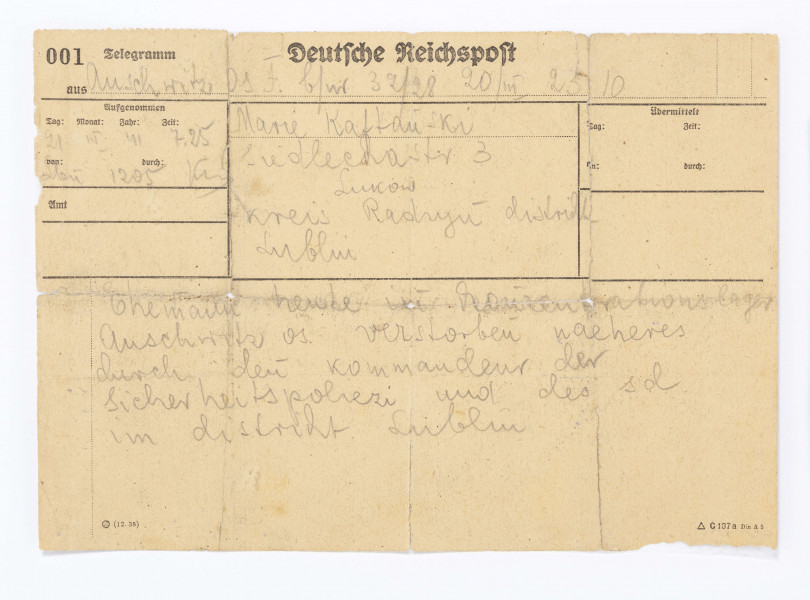 001 Telegramm Deutsche Reichspost
aus Auschwitz Os F. b/nr 32/28 20/III 23 10
Aufgenommen
Tag: Monat: Jahr: Zeit:
21 III 41 7.25
von: durch:
1205
Amt
Marie Kaftański
Siedlecka str 3
Lukow
kreis Radzyń distrikt
Lublin
Übermittelt
Tag: Zeit:
An: durch:
Ehemann heute im Konzentrationslager
Auschwitz os. verstorben naeheres
durch den kommandeur der
Sicherheitspolizei und des sd
im distrikt Lublin
(12.38)
C 187a Din A 5